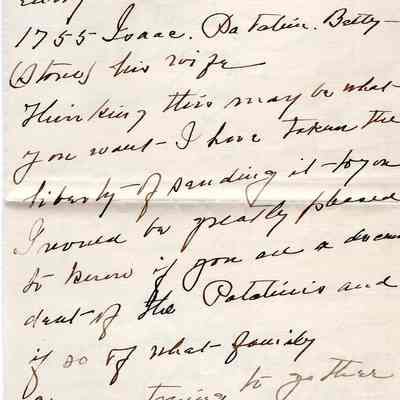 1755 Isaac. Patalin. Betty
(Stone) his wife
Thinking this may be what
you want I have taken the
liberty of sending it to you
I would be greatly pleased
to know if you are a decen
dent of the Patalins and
if so of what family
trying to gather